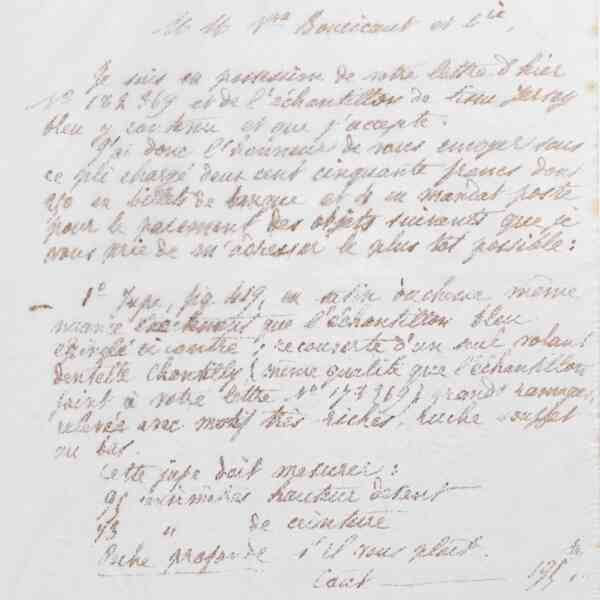 M M Vve Boucicaut et Cie,
Je suis en possession de votre lettre d'hier
No 182 369 et de l'échantillon de tissu Jersey
bleu y contenu et que j'accepte.
J'ai donc l'honneur de vous envoyer sous
ce pli chargé deux cent cinquante francs dont
en billets de banque et en mandat poste
pour le paiement des objets suivants que je
vous prie de m'adresser le plus tôt possible:
1o Jupe, fig. 419, en satin duchesse même
nuance exactement que l'échantillon bleu
épinglé ci contre; recouverte d'un seul volant
dentelle Chantilly (même qualité que l'échantillon
joint à votre lettre No 173 769) grands ramages,
relevée avec motifs très riches, ruche
au bas.
Cette jupe doit mesurer:
95 centimètres hauteur devant
73 " de ceinture
Poche profonde s'il vous plait.
Cout 195 fr.